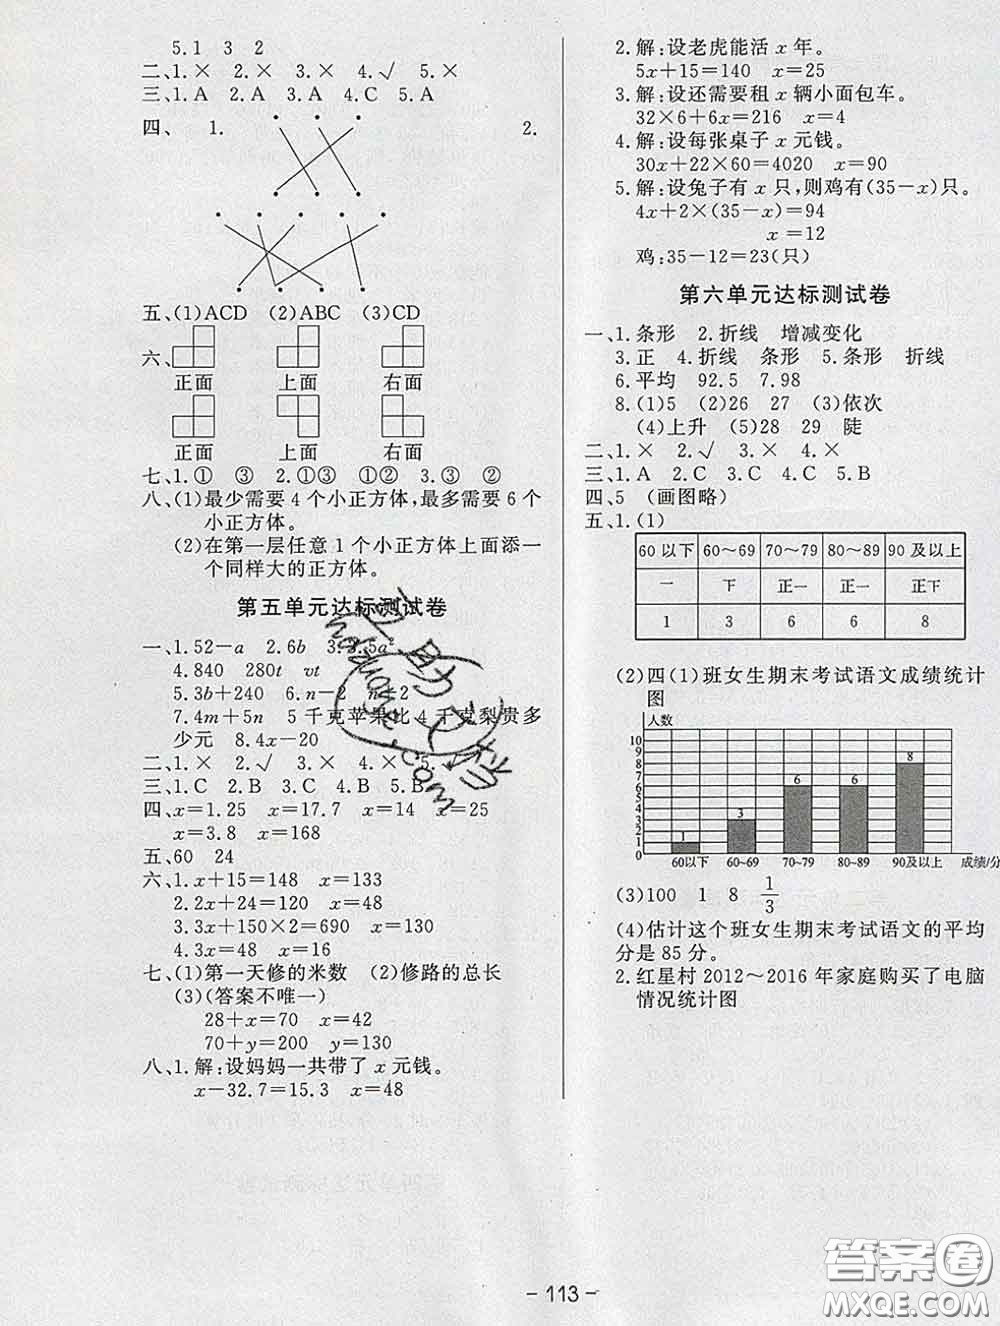 5.1 3 2
二、1.× 2.× 3.× 4.√ 5.×
三、1.A 2.A 3.A 4.C 5.A
四、 1. 2.
五、(1)ACD (2)ABC (3)CD
六、
正面 上面 右面
正面 上面 右面
七、1.① ③ 2.①③ ①② 3.③ ②
八、(1)最少需要 4 个小正方体,最多需要 6 个
小正方体。
(2)在第一层任意 1 个小正方体上面添一
个同样大的正方体。
第五单元达标测试卷
一、1.52－a 2.6b 3.3.5a²
4.840 280t vt
5.3b＋210 6.n－2 n＋2
7.4m＋5n 5 千克苹果比 4 千克梨贵多
少元 8.4x－20
二、1.× 2.√ 3.× 4.× 5.
三、1.C 2.B 3.C 4.B 5.B
四、x＝1.25 x＝17.7 x＝14 x＝25
x＝3.8 x＝168
五、60 24
六、1.x＋15＝148 x＝133
2.2x＋24＝120 x＝48
3.3x＋150×2＝690 x＝130
4.3x＝48 x＝16
七、(1)第一天修的米数 (2)修路的总长
(3)(答案不唯一)
28＋x＝70 x＝42
70＋y＝200 y＝130
八、1.解:设妈妈一共带了 x 元钱。
x－32.7＝15.3 x＝48
2.解:设老虎能活 x 年。
5x＋15＝140 x＝25
3.解:设还需要租 x 辆小面包车。
32×6＋6x＝216 x＝4
4.解:设每张桌子 x 元钱。
30x＋22×60＝4020 x＝90
5.解:设兔子有 x 只,则鸡有(35－x)只。
4x＋2×(35－x)＝94
x＝12
鸡:35－12＝23(只)
第六单元达标测试卷
一、1.条形 2.折线 增减变化
3.正 4.折线 条形 5.条形 折线
6.平均 92.5 7.98
8.(1)5 (2)26 27 (3)依次
(4)上升 (5)28 29 陡
二、1.× 2.√ 3.× 4.×
三、1.A 2.C 3.C 4.C 5.B
四、5 (画图略)
五、1.(1)
60 以下 60～69 70～79 80～89 90 及以上
一 下 正一 正一 正下
1 3 6 6 8
(2)四(1)班女生期末考试语文成绩统计
图
人数
10
9
8 8
7
6 6 6
5
4
3 3
2
1 1
0
60以下 60~69 70~79 80~89 90及以上 成绩/分
(3)100 1 8 1/3
(4)估计这个班女生期末考试语文的平均
分是 85 分。
2.红星村 2012～2016 年家庭购买了电脑
情况统计图
－ 113 －
答案圈
MXQE.COM